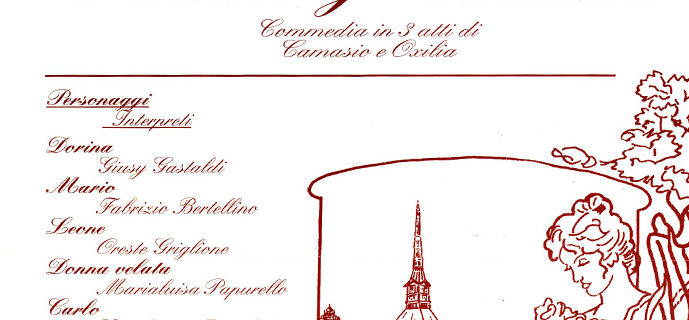 Commedia in 3 atti di
Camasio e Oxilia
Personaggi
Interpreti
Dorina
Giusy Gastaldi
Mario
Fabrizio Bertellino
Leone
Oreste Griglione
Donna velata
Marialuisa Papurello
Carlo